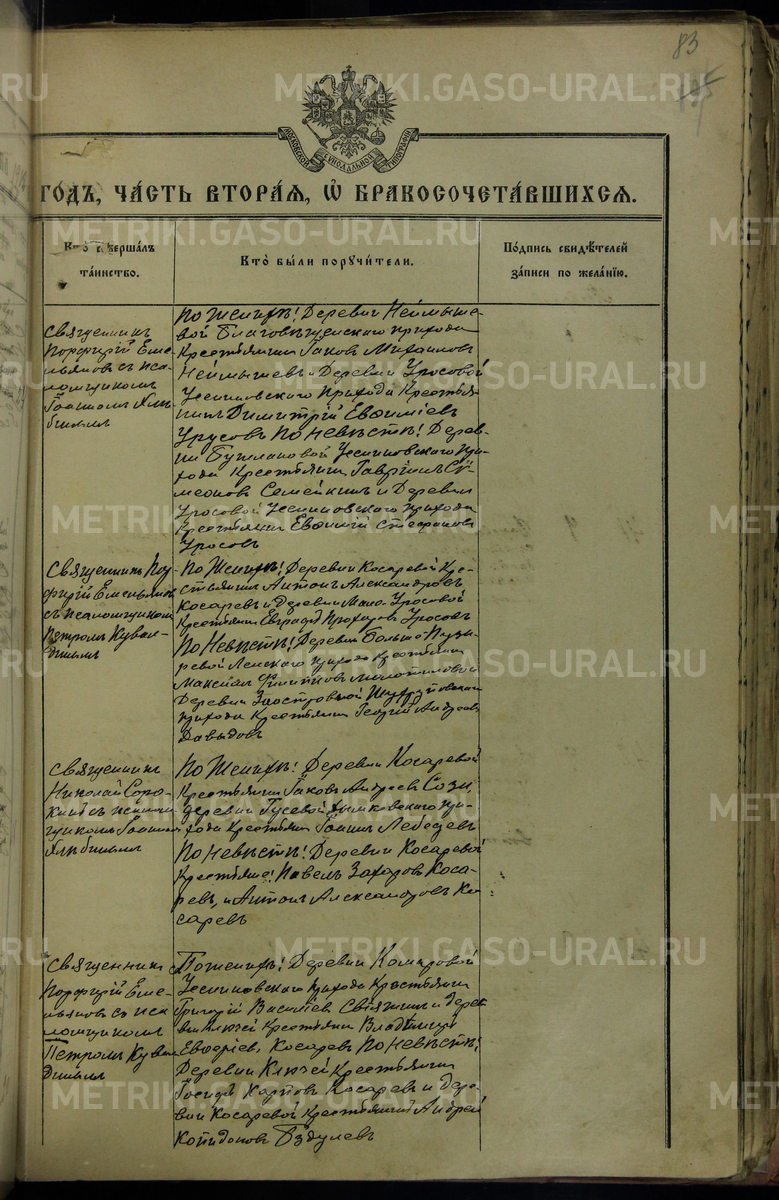 83
МОСКОВСКОЙ СѴНОДАЛЬНОЙ ТИПОГРАФІИ
ГОДЪ, ЧАСТЬ ВТОРАЯ, Ѡ БРАКОСОЧЕТАВШИХСЯ.
Кто совершалъ
таинство.
Кто были поручители.
Подпись свидѣтелей
записи по желанію.
Священникъ
Порфирій Еме-
льяновъ съ пса-
ломщикомъ
Іоанномъ Хлѣ-
бинымъ
По Женихѣ: Деревни Неймыше-
вой Благовѣщенскаго прихода
Крестьянинъ Іаковъ Михаиловъ
Неймышевъ и Деревни Уросовой
Усениновскаго Прихода Крестья-
нинъ Димитрій Евѳиміевъ
Урусовъ По Невѣстѣ: Дерев-
ни Бушлановой Усениновскаго при-
хода Крестьянинъ Гавріилъ Сѵ-
меоновъ Семейкинъ и Деревни
Уросовой Усениновскаго прихода
Крестьянинъ Евѳимій Стефановъ
Уросовъ
Священникъ Пор-
фирій Емельяновъ
съ псаломщикомъ
Петромъ Куван-
динымъ
По Женихѣ: Деревни Косаревой Кре-
стьянинъ Антонъ Александровъ
Косаревъ и Деревни Мало-Уросовой
Крестьянинъ Евграфъ Прохоровъ Уросовъ
По Невѣстѣ: Деревни Больше-Пузы-
ревой Ленскаго прихода Крестьянинъ
Максимъ Филипповъ и
Деревни Заостровной
прихода Крестьянинъ Георгій Андреевъ
Давыдовъ
Священникъ
Николай Соро-
кинъ съ псалом-
щикомъ Іоанномъ
Хлѣбинымъ
По Женихѣ: Деревни Косаревой
Крестьянинъ Іаковъ Андреевъ
деревни Гусевой Дымковскаго при-
хода Крестьянинъ Іоаннъ Лебедевъ
По Невѣстѣ: Деревни Косаревой
Крестьяне: Павелъ Захаровъ Коса-
ревъ, и Антонъ Александровъ Ко-
саревъ
Священникъ
Порфирій Еме-
льяновъ съ пса-
ломщикомъ
Петромъ Куван-
динымъ
По женихѣ: Деревни Комаровой
Усениновскаго Прихода Крестьянинъ
Григорій Василіевъ Свяжинъ и дерев-
ни Ключей Крестьянинъ Владиміръ
Косаревъ По Невѣстѣ:
Деревни Ключей Крестьянинъ
Іосифъ Карповъ Косаревъ и Дере-
вни Косаревой Крестьянинъ Андрей
Бздулевъ
METRIKI.GASO-URAL.RU